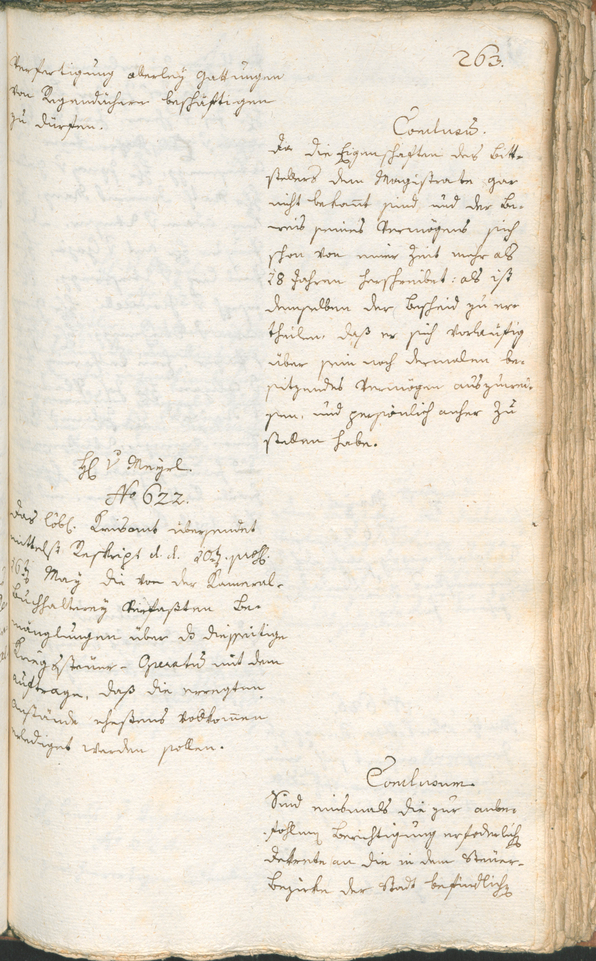 263.
Verfertigung allerley Gattungen
von Regendächern beschäftigen
zu dürfen.
Conclusum.
Da die Eigenschaften des Bitt-
stellers dem Magistrate gar
nicht bekannt sind, und der Be-
weis seines Vermögens sich
schon von einer Zeit mehr als
18 Jahren herschreibet: als ist
demselben der Bescheid zu er-
theilen, daß er sich vorläufig
über sein noch dermalen be-
sitzendes Vermögen auszuwei-
sen, und persönlich anher zu
stellen habe.
H. v. Mayrl.
No 622.
Das löbl. Kreisamt übersendet
mittelst Reskript d. d. 10t. präs.
16t. May die von der Kameral-
Buchhalterey verfaßten Be-
mänglungen über das diesseitige
Kriegssteuer-Operatum mit dem
Auftrage, daß die erregten
Anstände ehestens vollkommen
erlediget werden sollen.
Conclusum.
Sind nunmals die zur anbe-
fohlenen Berichtigung erforderlich
Dekrete an die in dem Steuer-
bezirke der Stadt befindlichen